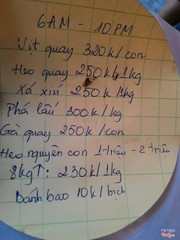 6AM - 10PM
Vịt quay 320k/con
Heo quay 250k/1kg
Xá xíu 250k/1kg
Phá lấu 300k/kg
Gà quay 250k/con
Heo nguyên con 1triệu - 2triệu
8kg↑: 230k/1kg
Bánh bao 10k/bịch